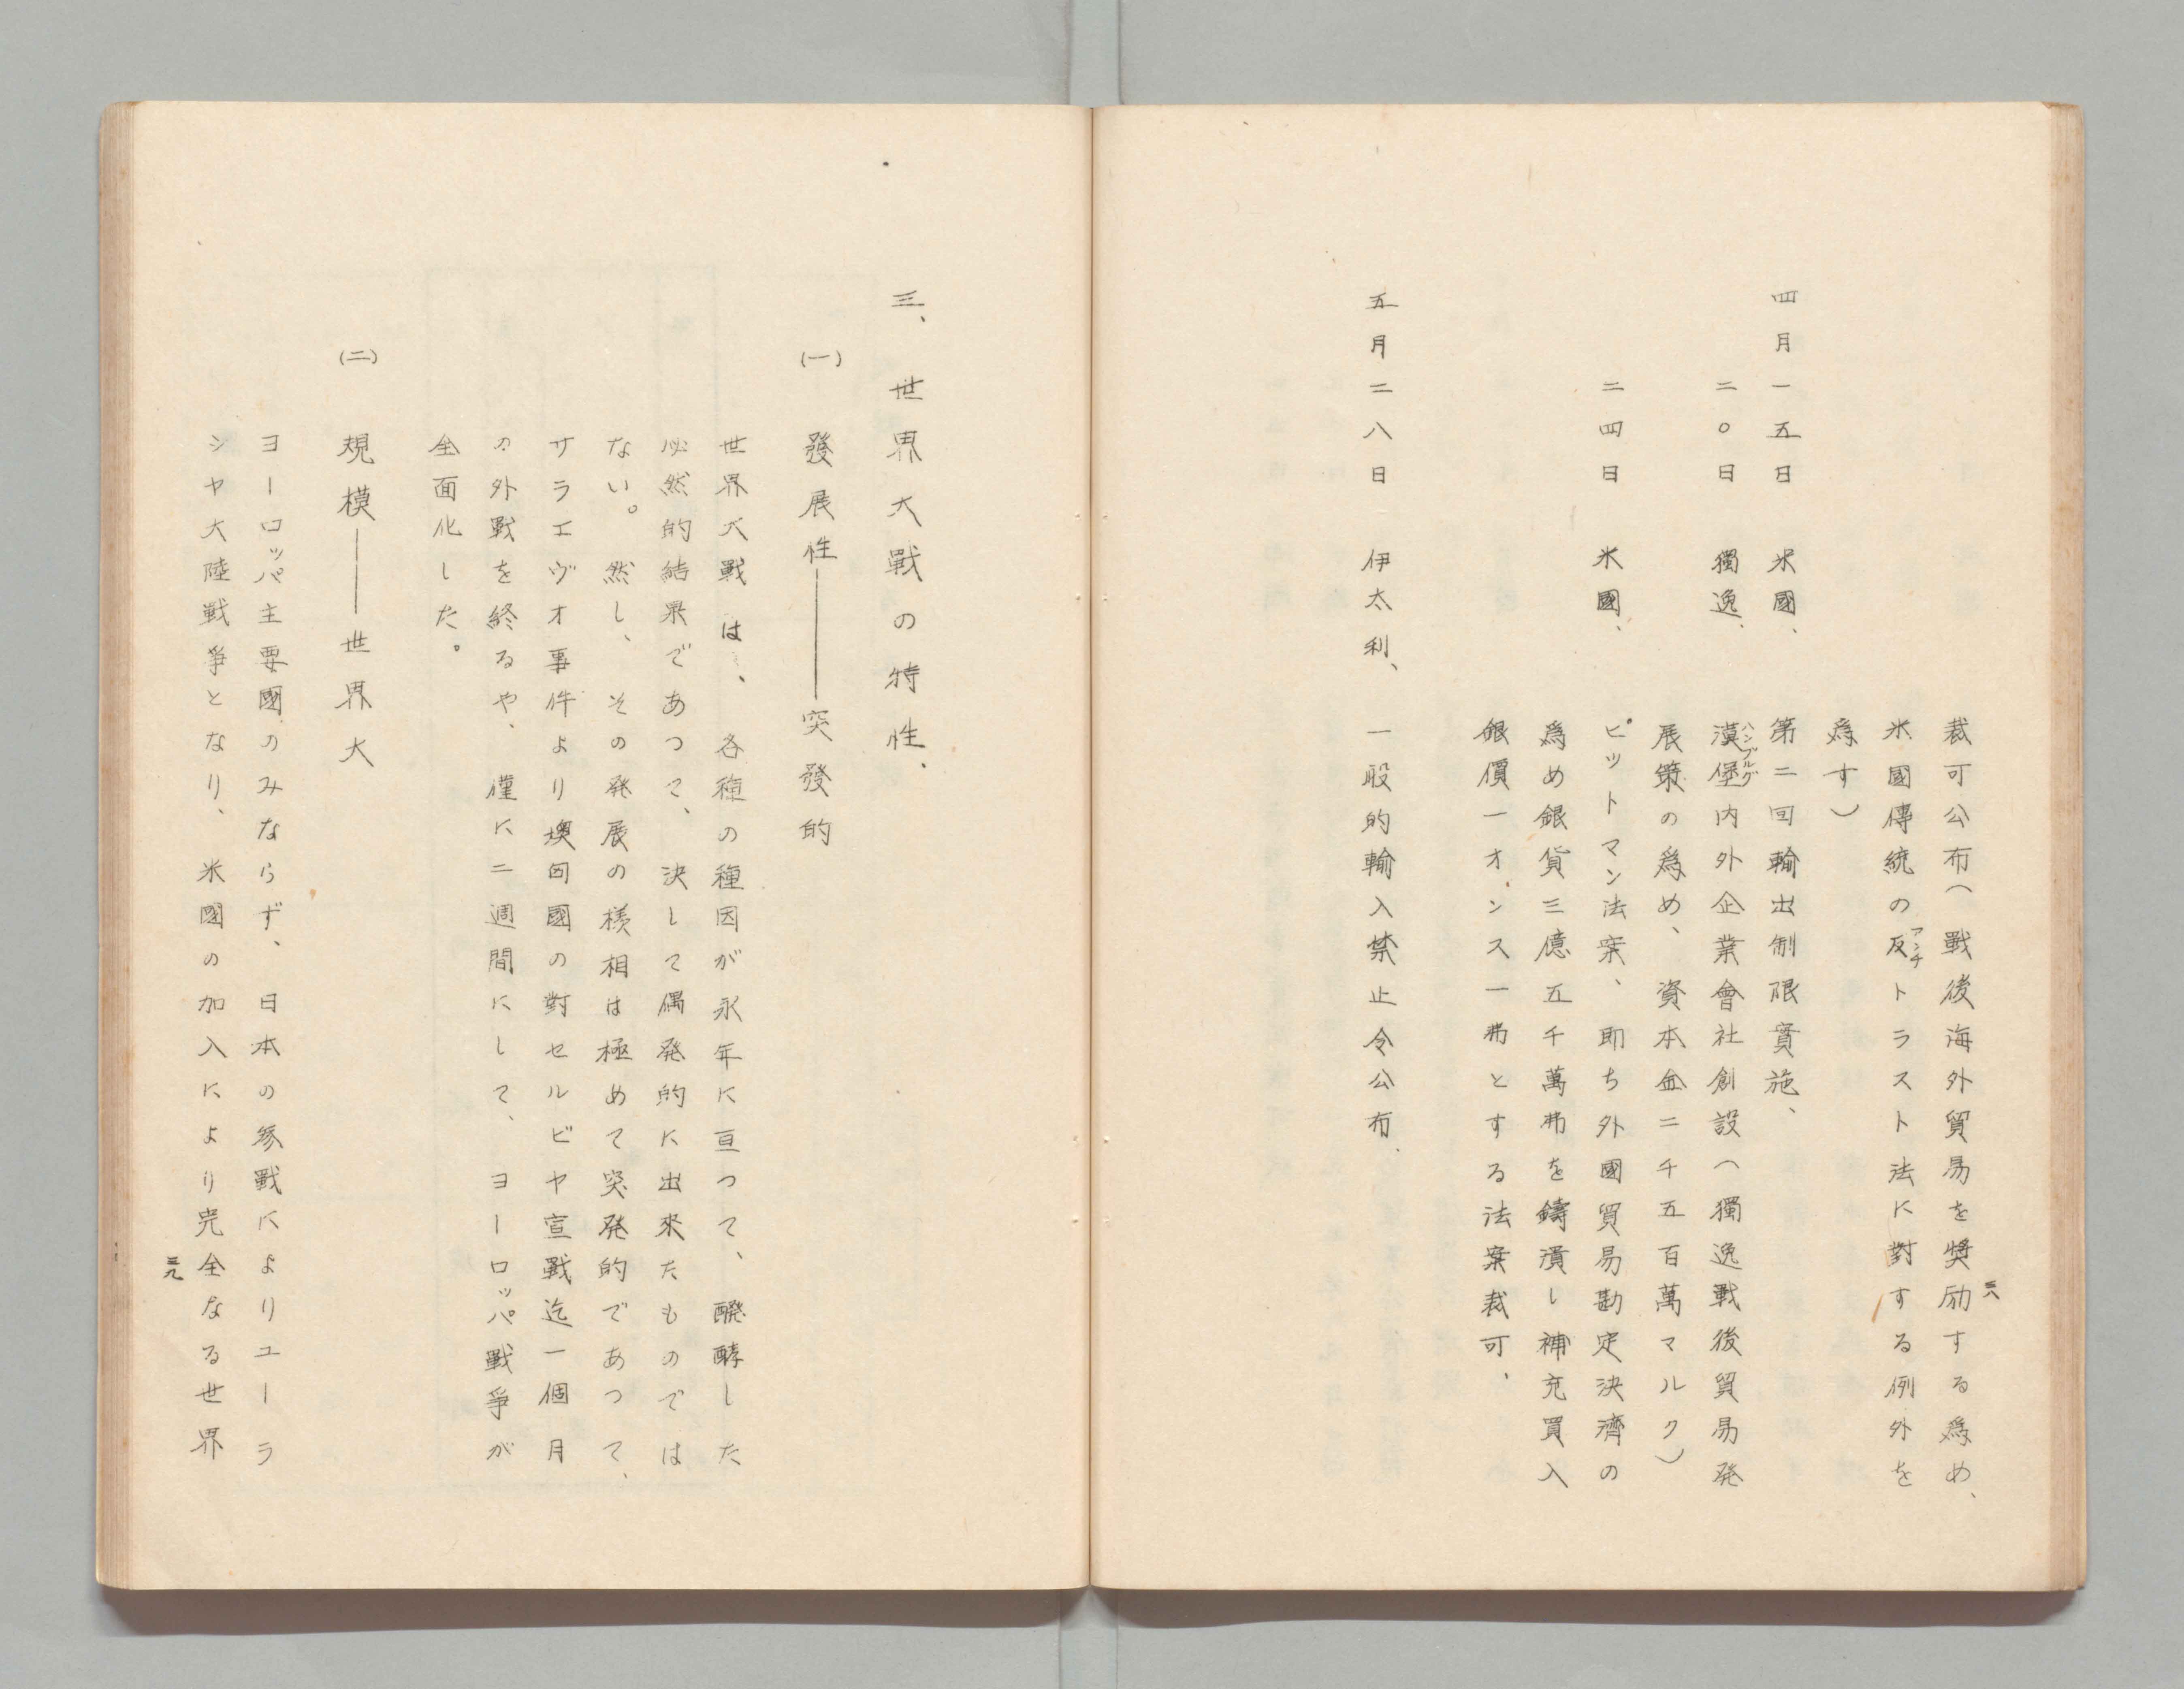 裁可公布(戰後海外貿易を奬励する爲め、
米國傳統の反トラスト法に對する例外を
アンチ
爲す)
四月一五日　米國、　第二回輸出制限實施、
二〇日　獨逸、　漢堡内外企業會社創設(獨逸戰後貿易発
ハンブルグ
展策の爲め、資本金二千五百萬マルク)
二四日　米國、　ピットマン法案、即ち外國貿易勘定決濟の
爲め銀貨三億五千萬弗を鑄潰し補充買入
銀價一オンス一弗とする法案裁可、
五月二八日　伊太利、　一般的輸入禁止令公布.
三八
三、世界大戰の特性、
(一)　發展性——突發的
世界大戰は、各種の種因が永年に亘つて、醗酵した
必然的結果であつて、決して偶発的に出來たものでは
ない。然し、その発展の様相は極めて突発的であつて、
サラエヴオ事件より墺匈國の對セルビヤ宣戰迄一個月
の外戰を終るや、僅に二週間にして、ヨーロッパ戰爭が
全面化した。
(二)　規模——世界大
ヨーロッパ主要國のみならず、日本の參戰によりユーラ
シヤ大陸戰爭となり、米國の加入により完全なる世界
三九